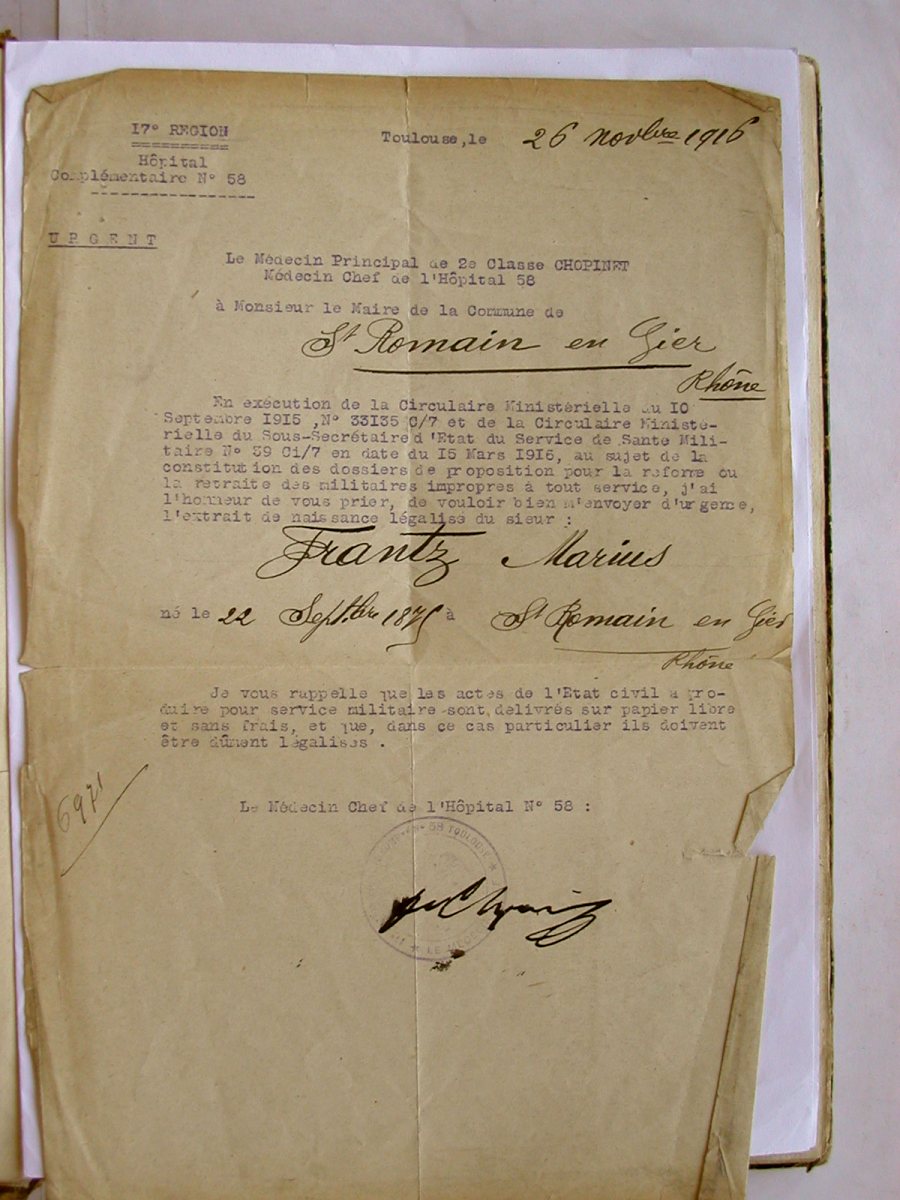 17° REGION
Toulouse, le 26 novbre 1916
Hôpital
Complémentaire N° 58
URGENT
Le Médecin Principal de 2e Classe CHOPINET
Médecin Chef de l'Hôpital 58
à Monsieur le Maire de la Commune de
St Romain en Gier
Rhône
En exécution de la Circulaire Ministérielle du 10
Septembre 1915 ,N° 33135 C/7 et de la Circulaire Ministé-
rielle du Sous-Secrétaire d'Etat du Service de Sante Mili-
taire N° 39 Ci/7 en date du 15 Mars 1916, au sujet de la
constitution des dossiers de proposition pour la reforme ou
la retraite des militaires impropres à tout service, j'ai
l'honneur de vous prier, de vouloir bien m'envoyer d'urgence,
l'extrait de naissance légalisé du sieur :
Frantz Marius
né le 22 Septbre 1875 à St Romain en Gier
Rhône
Je vous rappelle que les actes de l'Etat civil à pro-
duire pour service militaire sont délivrés sur papier libre
et sans frais, et que, dans ce cas particulier ils doivent
être dûment légalisés .
6971
Le Médecin Chef de l'Hôpital N° 58 :
58 TOULOUSE
LE